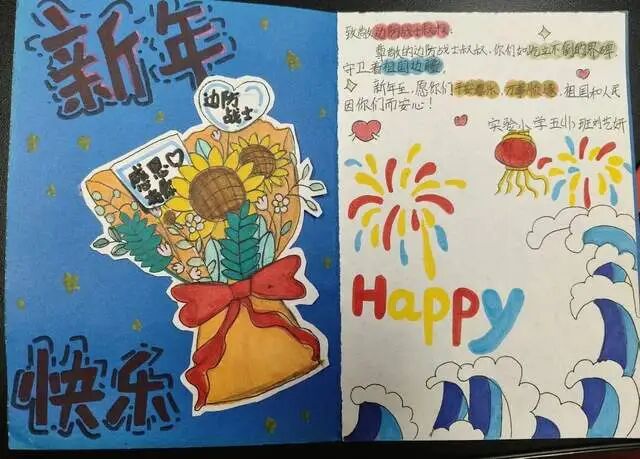 新年
快乐
边防
战士
感恩
致敬边防战士叔叔:
尊敬的边防战士叔叔,你们如屹立不倒的界碑,
守卫着祖国边疆。
新年至,愿你们平安喜乐,万事顺遂,祖国和人民
因你们而安心!
实验小学五(1)班刘艺妍
Happy